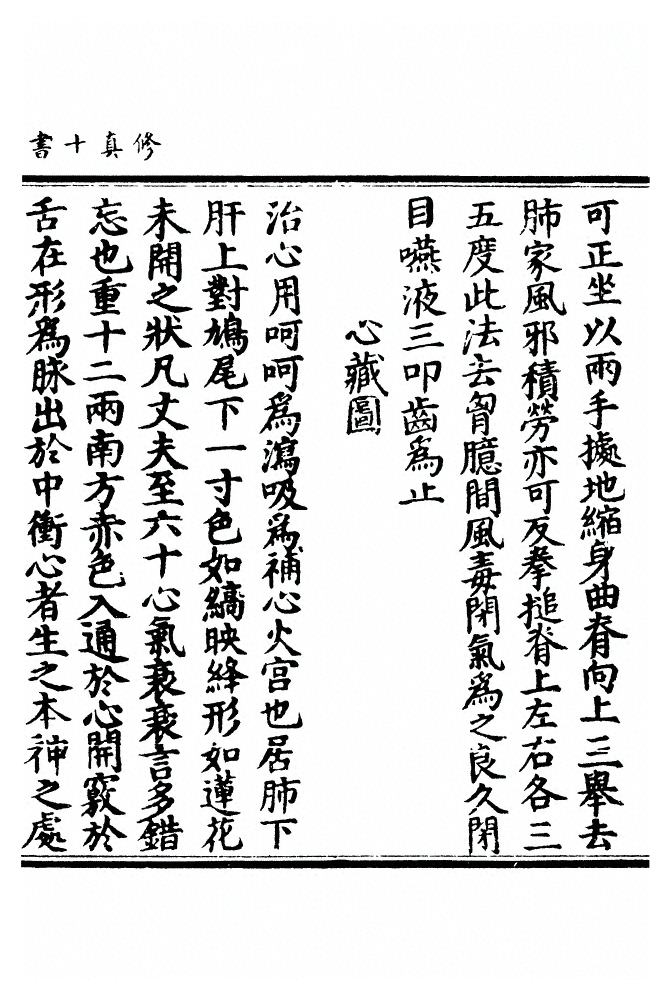 修真十書
可正坐以兩手據地縮身曲脊向上三舉去
肺家風邪積勞亦可反拳搥脊上左右各三
五度此法去胷臆間風毒閉氣爲之良久閉
目嚥液三叩齒爲止
心藏圖
治心用呵呵爲瀉吸爲補心火宫也居肺下
肝上對鳩尾下一寸色如縞映絳形如蓮花
未開之狀凡丈夫至六十心氣衰衰言多錯
忘也重十二兩南方赤色入通於心開竅於
舌在形爲脉出於中衝心者生之本神之處